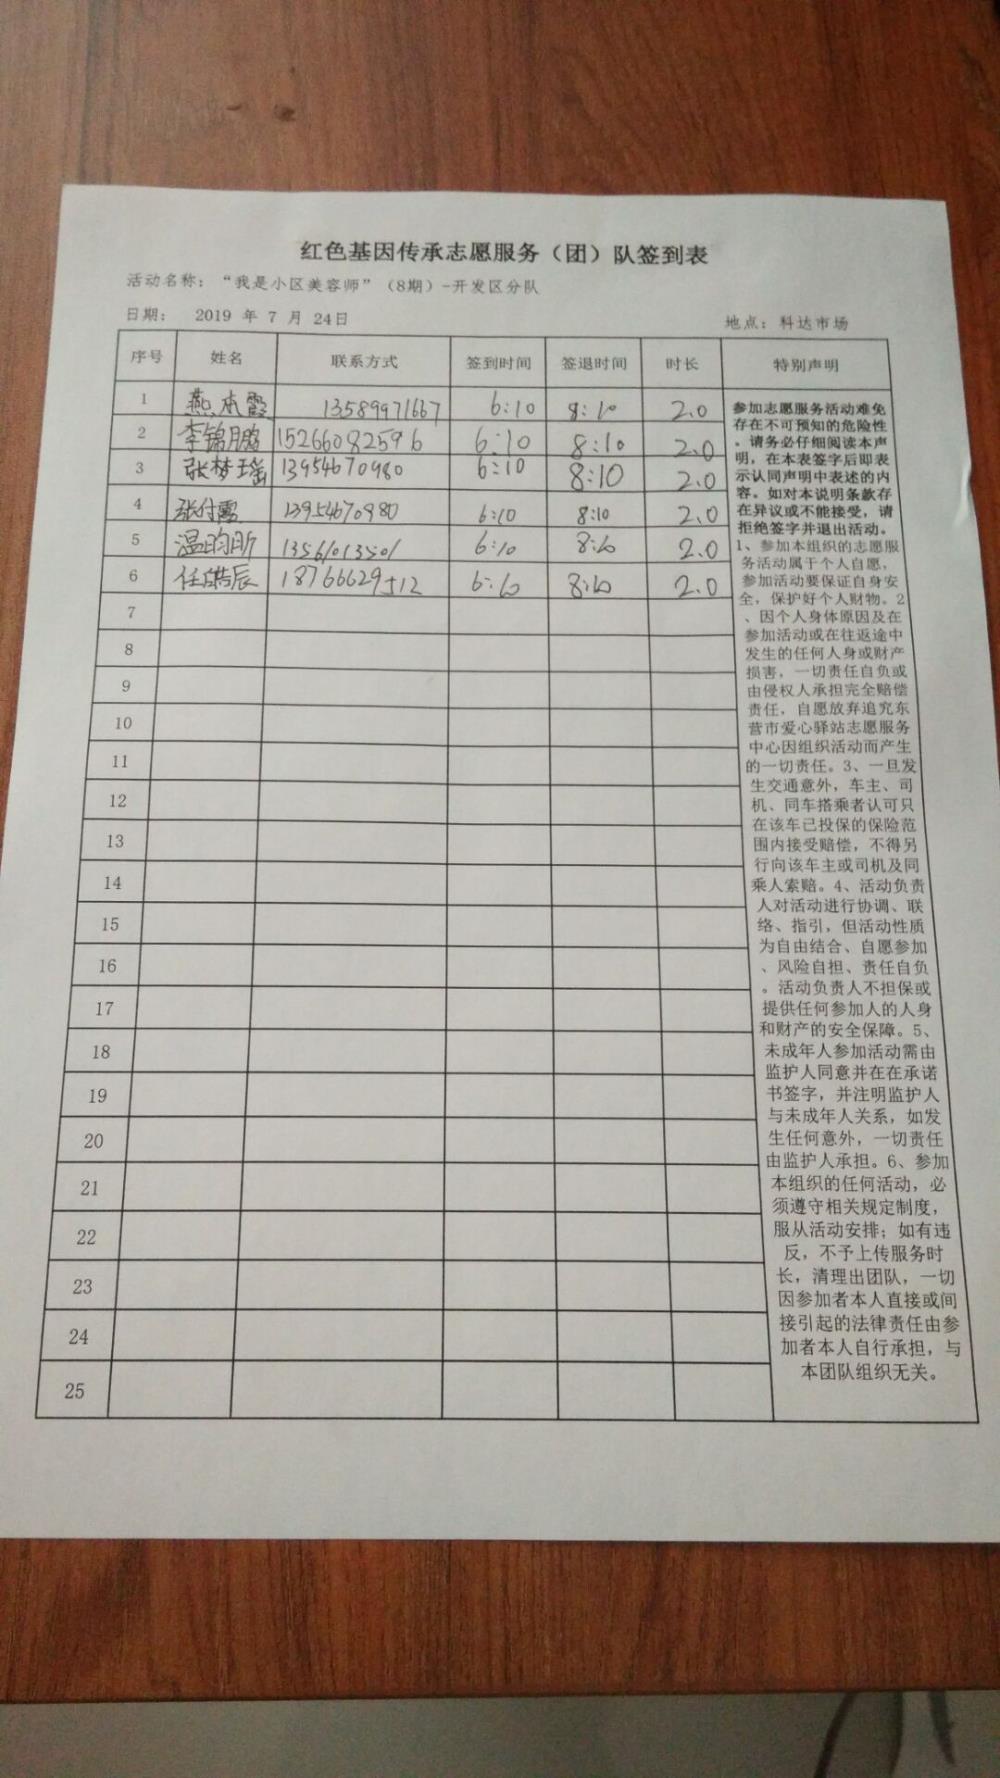 红色基因传承志愿服务（团）队签到表
活动名称：“我是小区美容师”（8期）-开发区分队
日期： 2019 年 7 月 24日 地点：科达市场
序号 姓名 联系方式 签到时间 签退时间 时长 特别声明
1 燕本霞 13589971667 6:10 8:10 2.0
2 李锦鹏 15266082596 6:10 8:10 2.0
3 张梦瑶 13954670980 6:10 8:10 2.0
4 张付霞 13954670980 6:10 8:10 2.0
5 温昀昕 13561013501 6:10 8:10 2.0
6 任皓辰 18766629512 6:10 8:10 2.0
7
8
9
10
11
12
13
14
15
16
17
18
19
20
21
22
23
24
25
参加志愿服务活动难免
存在不可预知的危险性
。请务必仔细阅读本声
明，在本表签字后即表
示认同声明中表述的内
容。如对本说明条款存
在异议或不能接受，请
拒绝签字并退出活动。
1、参加本组织的志愿服
务活动属于个人自愿，
参加活动要保证自身安
全，保护好个人财物。2
、因个人身体原因及在
参加活动或在往返途中
发生的任何人身或财产
损害，一切责任自负或
由侵权人承担完全赔偿
责任，自愿放弃追究东
营市爱心驿站志愿服务
中心因组织活动而产生
的一切责任。3、一旦发
生交通意外，车主、司
机、同车搭乘者认可只
在该车已投保的保险范
围内接受赔偿，不得另
行向该车主或司机及同
乘人索赔。4、活动负责
人对活动进行协调、联
络、指引，但活动性质
为自由结合、自愿参加
、风险自担、责任自负
。活动负责人不担保或
提供任何参加人的人身
和财产的安全保障。5、
未成年人参加活动需由
监护人同意并在在承诺
书签字，并注明监护人
与未成年人关系，如发
生任何意外，一切责任
由监护人承担。6、参加
本组织的任何活动，必
须遵守相关规定制度，
服从活动安排；如有违
反，不予上传服务时
长，清理出团队，一切
因参加者本人直接或间
接引起的法律责任由参
加者本人自行承担，与
本团队组织无关。